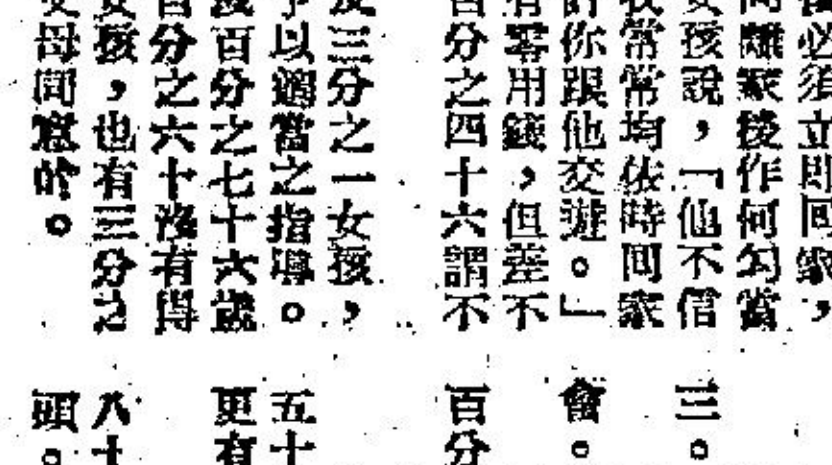 必須立即回家,
離家後作何勾當
女孩說,「他不信
常常均依時間家
你跟他交遊。」
零用錢,但差不
百分之四十六謂不
三分之一女孩,
以適當之指導。
沒百分之七十六歲
百分之六十沒有得
女孩,也有三分之
父母同意的。
三。
會。
百分
五十
更有
八十
頭。